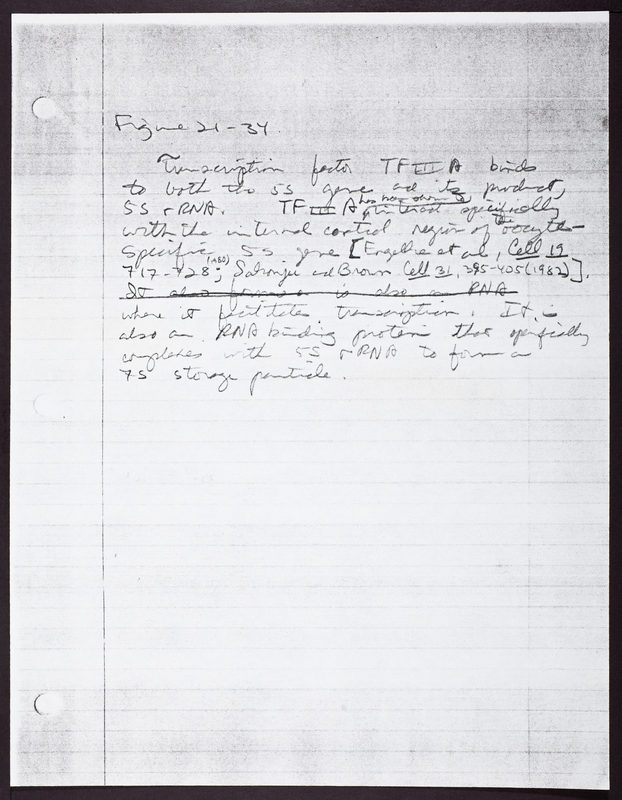 Figure 21-34.
Transcription factor TF III A binds
to both the 5S gene and its product,
5S rRNA. TF III A has been shown to interact specifically
with the internal control region of the oocyte-
specific 5S gene [Engelke et al, Cell 19
717-728; (1980) and Brown Cell 31, 395-405 (1982)].
It also forms a is also an RNA
where it facilitates transcription. It is
also an RNA binding protein that specifically
complexes with 5S rRNA to form a
7S storage particle.